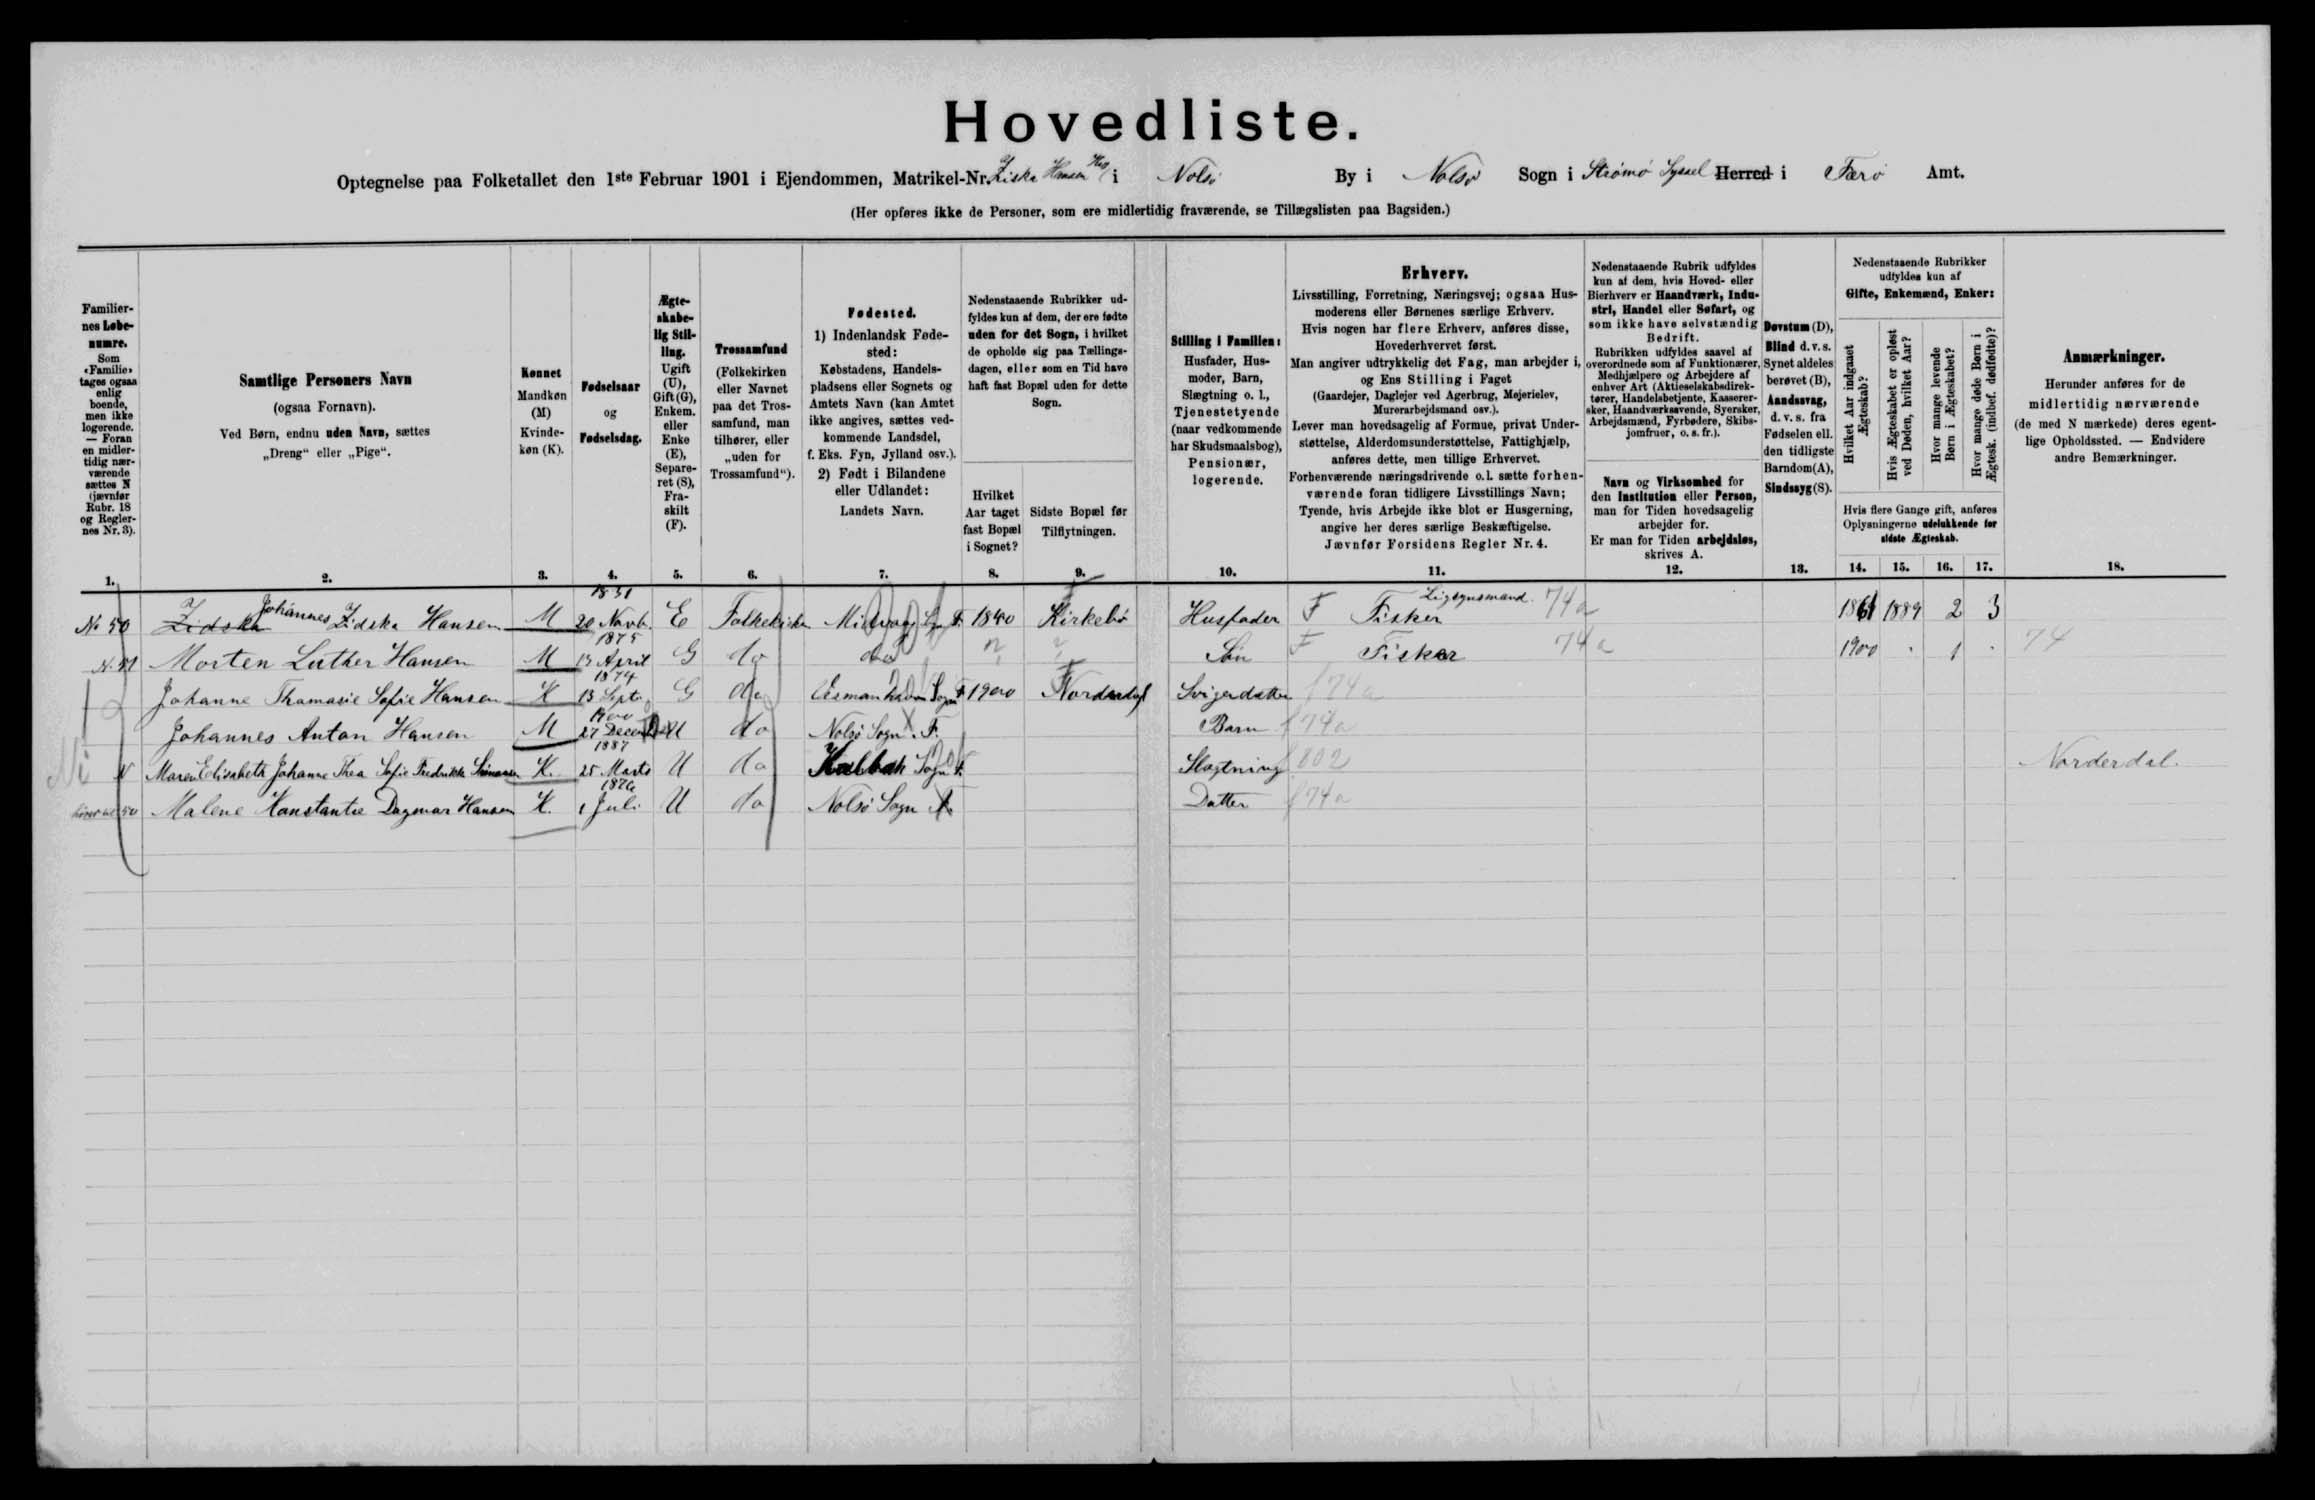 Hovedliste.
Optegnelse paa Folketallet den 1ste Februar 1901 i Ejendommen, Matrikel-Nr. Ziska Hansen i Nolsø By i Nolsø Sogn i Strømø Syssel Herred i Færø Amt.
(Her opføres ikke de Personer, som ere midlertidig fraværende, se Tillægslisten paa Bagsiden.)
Familiernes Løbenumre.
Som «Familie» tages ogsaa enlig boende, men ikke logerende. — Foran en midlertidig nærværende sættes N (jævnfør Rubr. 18 og Reglernes Nr. 3).
1.
Samtlige Personers Navn
(ogsaa Fornavn).
Ved Børn, endnu uden Navn, sættes
„Dreng“ eller „Pige“.
2.
Kønnet
Mandkøn (M)
Kvindekøn (K).
3.
Fødselsaar
og
Fødselsdag.
4.
Ægteskabelig Stilling.
Ugift (U), Gift (G), Enkem. eller Enke (E), Separeret (S), Fraskilt (F).
5.
Trossamfund
(Folkekirken eller Navnet paa det Trossamfund, man tilhører, eller „uden for Trossamfund“).
6.
Fødested.
1) Indenlandsk Fødested:
Købstadens, Handelspladsens eller Sognets og Amtets Navn (kan Amtet ikke angives, sættes vedkommende Landsdel, f. Eks. Fyn, Jylland osv.).
2) Født i Bilandene eller Udlandet:
Landets Navn.
7.
Nedenstaaende Rubrikker udfyldes kun af dem, der ere fødte uden for det Sogn, i hvilket de opholde sig paa Tællingsdagen, eller som en Tid have haft fast Bopæl uden for dette Sogn.
Hvilket Aar taget fast Bopæl i Sognet?
8.
Sidste Bopæl før Tilflytningen.
9.
Stilling i Familien:
Husfader, Husmoder, Barn, Slægtning o. l., Tjenestetyende (naar vedkommende har Skudsmaalsbog), Pensionær, logerende.
10.
Erhverv.
Livsstilling, Forretning, Næringsvej; ogsaa Husmoderens eller Børnenes særlige Erhverv.
Hvis nogen har flere Erhverv, anføres disse, Hovederhvervet først.
Man angiver udtrykkelig det Fag, man arbejder i, og Ens Stilling i Faget
(Gaardejer, Daglejer ved Agerbrug, Mejerielev, Murerarbejdsmand osv.).
Lever man hovedsagelig af Formue, privat Understøttelse, Alderdomsunderstøttelse, Fattighjælp, anføres dette, men tillige Erhvervet.
Forhenværende næringsdrivende o. l. sætte forhenværende foran tidligere Livsstillings Navn;
Tyende, hvis Arbejde ikke blot er Husgerning, angive her deres særlige Beskæftigelse.
Jævnfør Forsidens Regler Nr. 4.
11.
Nedenstaaende Rubrik udfyldes kun af dem, hvis Hoved- eller Bierhverv er Haandværk, Industri, Handel eller Søfart, og som ikke have selvstændig Bedrift.
Rubrikken udfyldes saavel af overordnede som af Funktionærer, Medhjælpere og Arbejdere af enhver Art (Aktieselskabsdirektører, Handelsbetjente, Kasserersker, Haandværkssvende, Syersker, Arbejdsmænd, Fyrbødere, Skibsjomfruer, o. s. fr.).
Navn og Virksomhed for den Institution eller Person, man for Tiden hovedsagelig arbejder for.
Er man for Tiden arbejdsløs, skrives A.
12.
Døvstum (D),
Blind d. v. s. Synet aldeles berøvet (B),
Aandssvag, d. v. s. fra Fødselen ell. den tidligste Barndom (A),
Sindssyg (S).
13.
Nedenstaaende Rubrikker udfyldes kun af
Gifte, Enkemænd, Enker:
Hvilket Aar indgaaet Ægteskab?
Hvis Ægteskabet er opløst ved Døden, hvilket Aar?
Hvor mange levende Børn i Ægteskabet?
Hvor mange døde Børn i Ægtesk. (indbef. dødfødte)?
Hvis flere Gange gift, anføres Oplysningerne udelukkende for sidste Ægteskab.
14. 15. 16. 17.
Anmærkninger.
Herunder anføres for de midlertidig nærværende (de med N mærkede) deres egentlige Opholdssted. — Endvidere andre Bemærkninger.
18.
No 50 Zidska Johannes Zidska Hansen M 1831 20 Novb. E Folkekirken F. 1840 Kirkebø Husfader F Fisker Ligsynsmand 74a 1889 2 3
N. 51 Morten Luther Hansen M 1875 13 April G do do Søn F Fisker 74a 1900 1 74
Johanne Thomasie Sofie Hansen K 1874 13 Sept. G do Sogn F. 1900 Norderdal Svigerdatter f 74a
Johannes Anton Hansen M 1900 27 Decem U do Nolsø Sogn. F. Barn f 74a
N Maren Elisabeth Johanne Thea Sofie Fredrikke Simonsen K. 1887 25 Marts U do Kalbak Sogn F. Slægtning f 802 Norderdal.
hører til 50 Malene Konstantie Dagmar Hansen K. 1 Juli U do Nolsø Sogn F. Datter f 74a